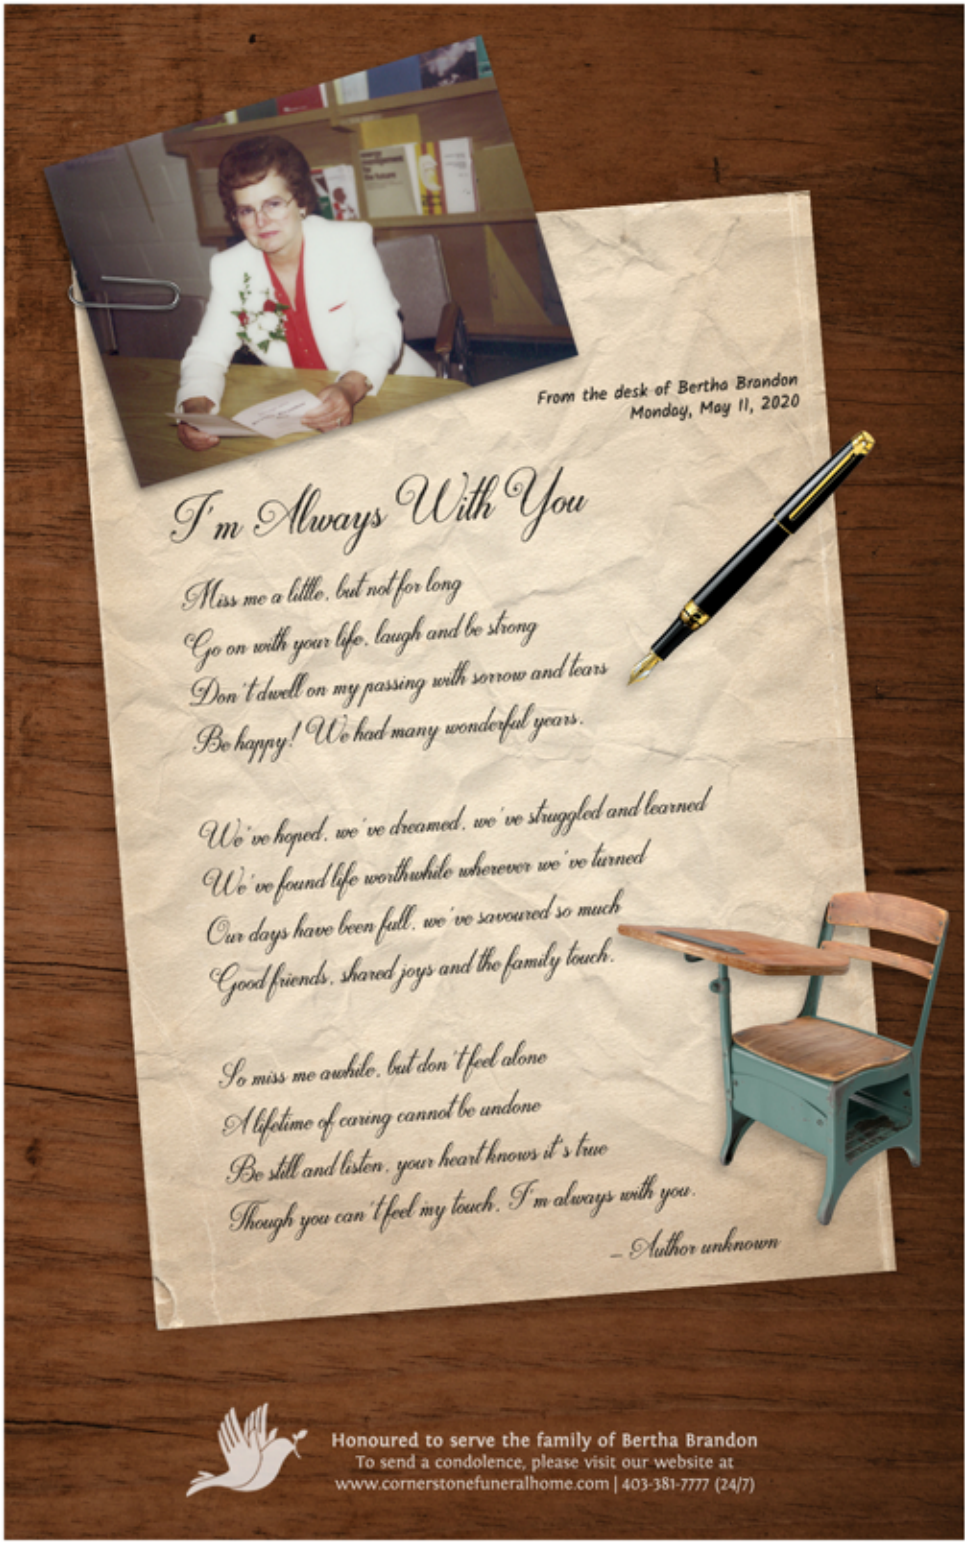 energy
management
for
the future
From the desk of Bertha Brandon
Monday, May 11, 2020
I'm Always With You
Miss me a little, but not for long
Go on with your life, laugh and be strong
Don't dwell on my passing with sorrow and tears
Be happy! We had many wonderful years.
We've hoped, we've dreamed, we've struggled and learned
We've found life worthwhile wherever we've turned
Our days have been full, we've savoured so much
Good friends, shared joys and the family touch.
So miss me awhile, but don't feel alone
A lifetime of caring cannot be undone
Be still and listen, your heart knows it's true
Though you can't feel my touch, I'm always with you.
– Author unknown
Honoured to serve the family of Bertha Brandon
To send a condolence, please visit our website at
www.cornerstonefuneralhome.com | 403-381-7777 (24/7)